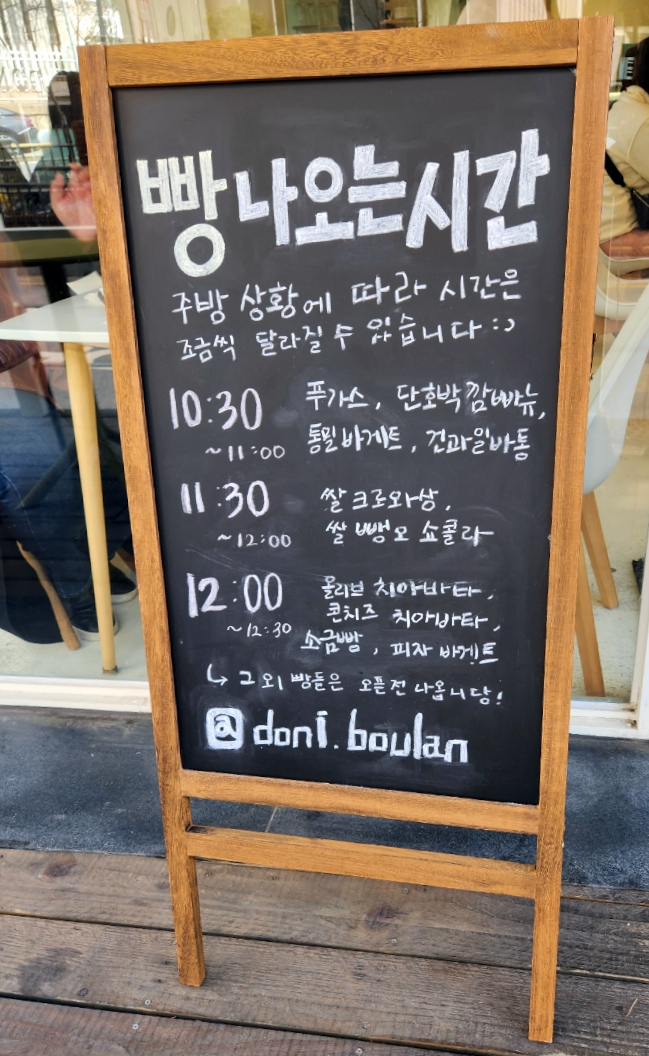 빵 나오는 시간
주방 상황에 따라 시간은
조금씩 달라질 수 있습니다 :)
10:30 푸가스, 단호박 깜빠뉴,
~11:00 통밀 바게트, 건과일바통
11:30 쌀 크로와상,
~12:00 쌀 뺑오 쇼콜라
12:00 올리브 치아바타,
콘치즈 치아바타,
~12:30 소금빵, 피자 바게트
↳ 그 외 빵들은 오픈 전 나옵니당!
@doni.boulan